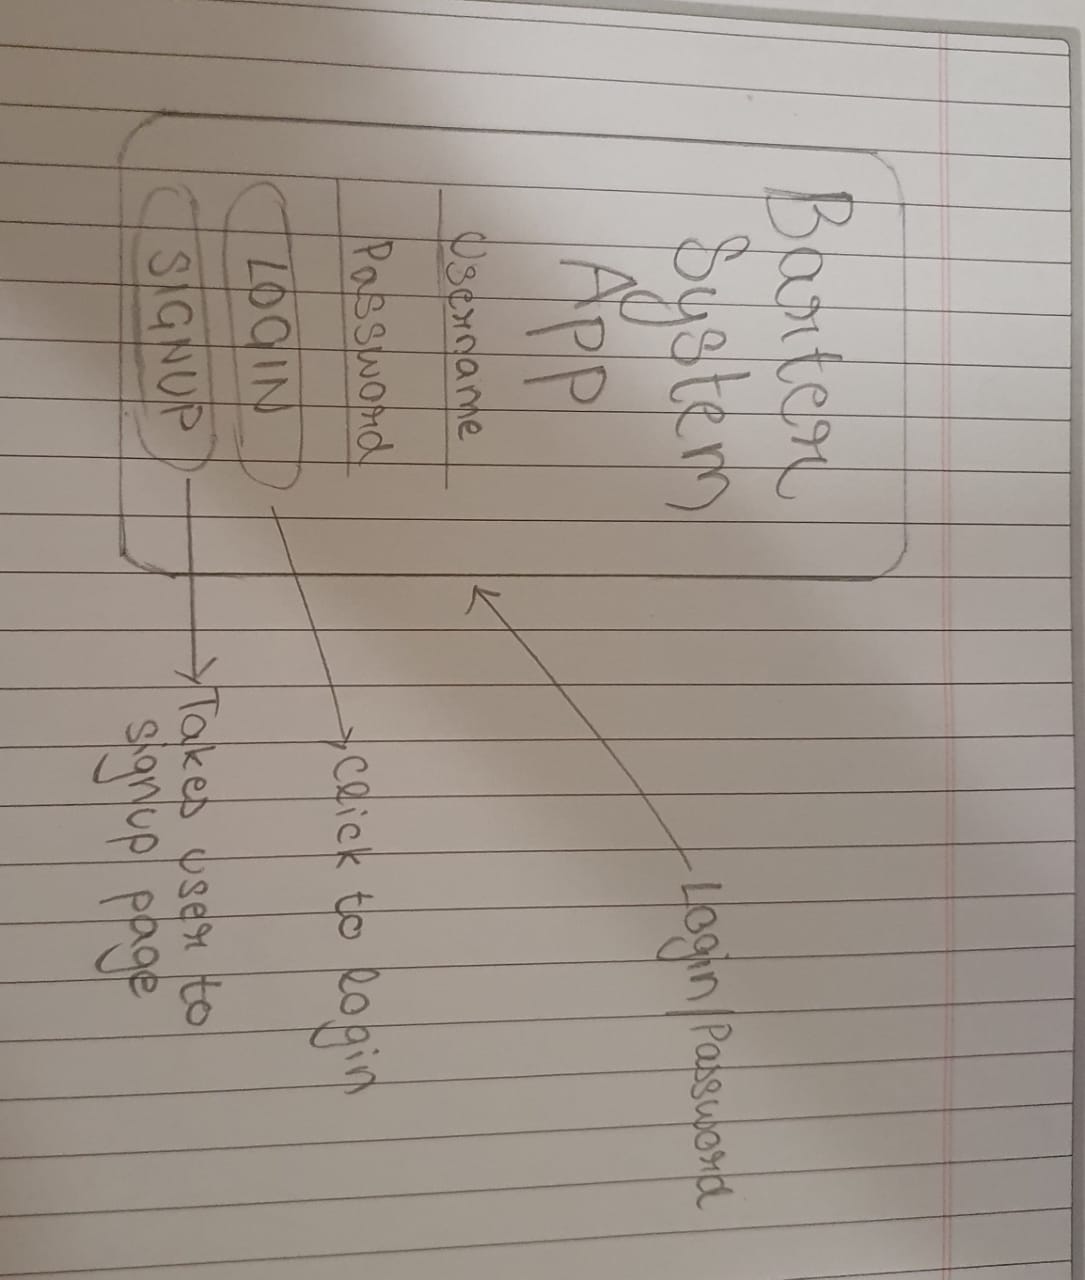 Barter
System
App
Username
Password
LOGIN
SIGNUP
Login/Password
click to login
Takes user to
signup page